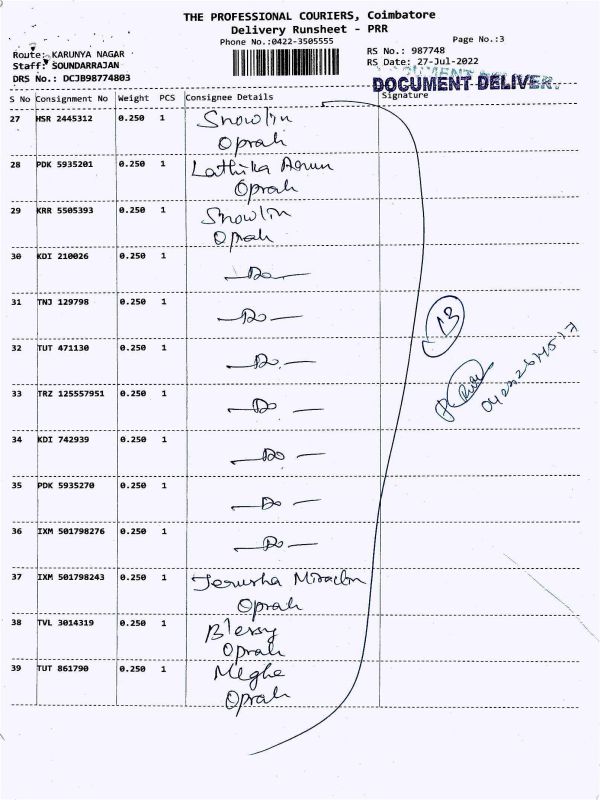 THE PROFESSIONAL COURIERS, Coimbatore
Delivery Runsheet - PRR
Phone No.:0422-3505555
Page No.:3
Route: KARUNYA NAGAR
Staff: SOUNDARRAJAN
DRS No.: DCJB98774803
RS No.: 987748
RS Date: 27-Jul-2022
DOCUMENT DELIVER.
S No Consignment No Weight PCS Consignee Details Signature
27 HSR 2445312 0.250 1 Snowlin
Oprah
28 PDK 5935201 0.250 1 Lathika Arun
Oprah
29 KRR 5505393 0.250 1 Snowlin
Oprah
30 KDI 210026 0.250 1 —Do—
31 TNJ 129798 0.250 1 —Do—
13
32 TUT 471130 0.250 1 —Do.—
33 TRZ 125557951 0.250 1 —Do—
34 KDI 742939 0.250 1 —Do—
35 PDK 5935270 0.250 1 —Do—
36 IXM 501798276 0.250 1 —Do—
37 IXM 501798243 0.250 1 Jerusha Miraclin
Oprah
38 TVL 3014319 0.250 1 Blessy
Oprah
39 TUT 861790 0.250 1 Meghe
Oprah